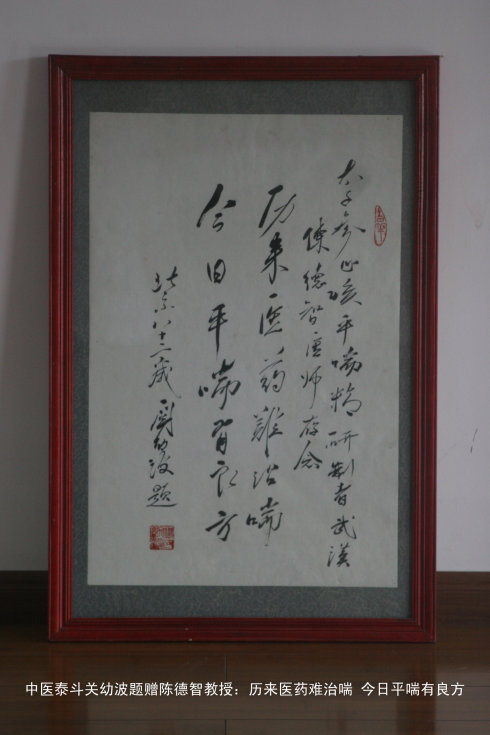 太子參止咳平喘研制者武漢
陳德智医师存念
历来医药難治喘
今日平喘有良方
北京八十歲關幼波題
中医泰斗关幼波题赠陈德智教授：历来医药难治喘 今日平喘有良方